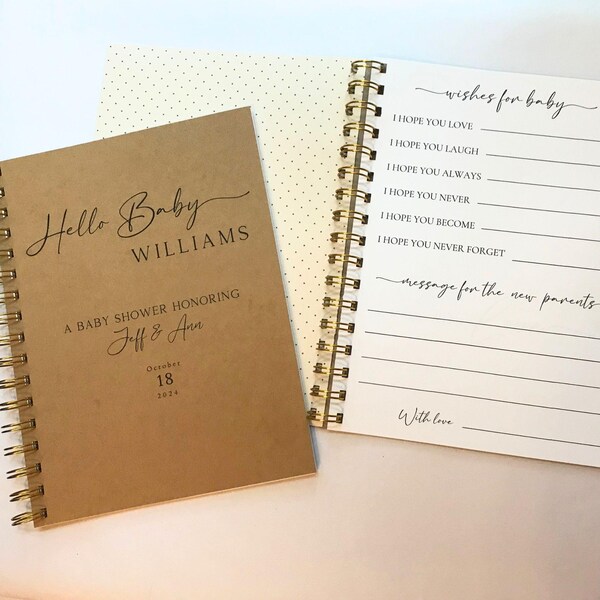 Hello Baby
WILLIAMS
A BABY SHOWER HONORING
Jeff & Ann
October
18
2024
wishes for baby
I HOPE YOU LOVE
I HOPE YOU LAUGH
I HOPE YOU ALWAYS
I HOPE YOU NEVER
I HOPE YOU BECOME
I HOPE YOU NEVER FORGET
message for the new parents
With love